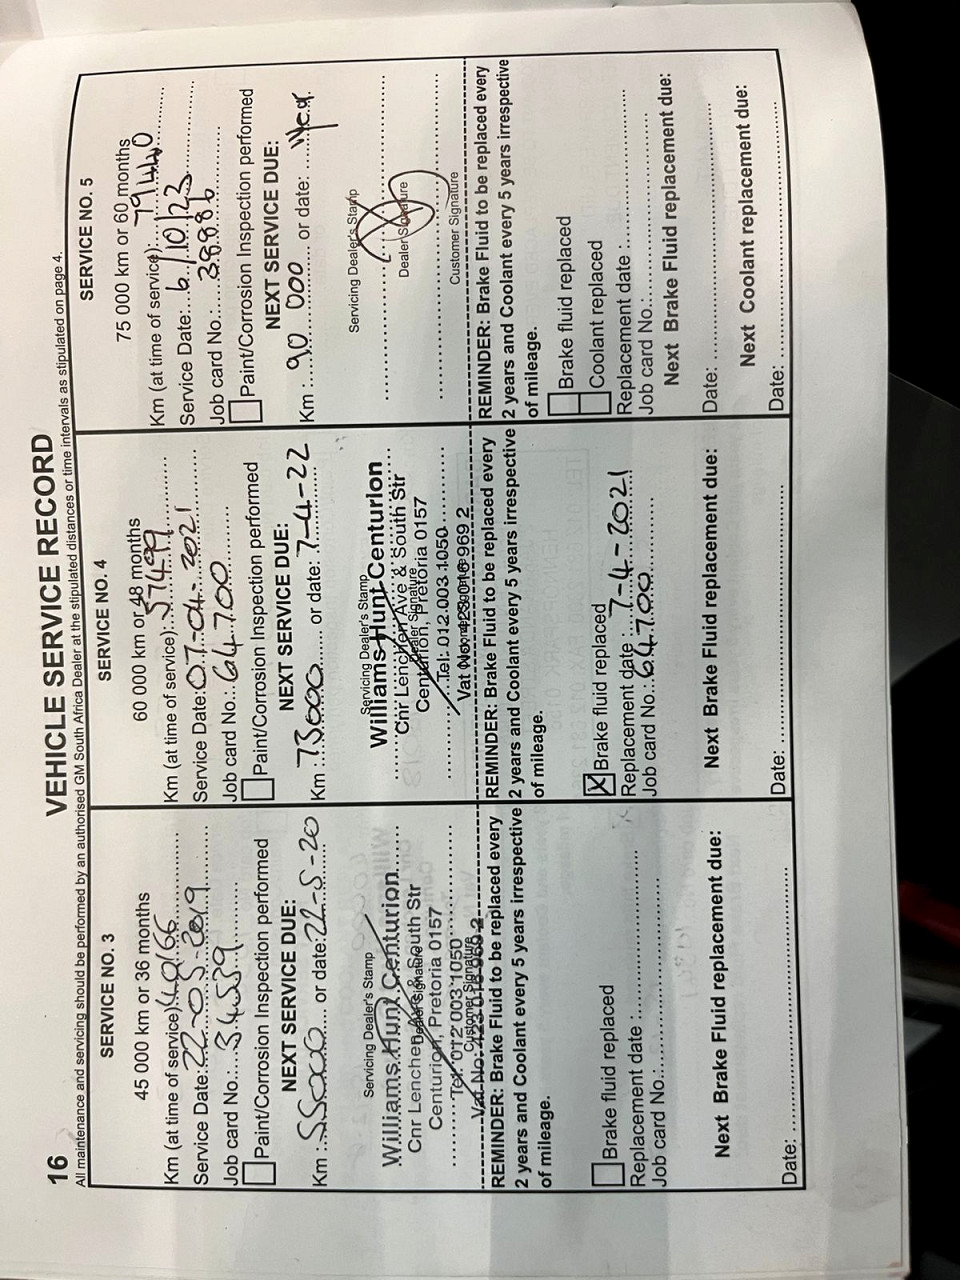 16
VEHICLE SERVICE RECORD
All maintenance and servicing should be performed by an authorised GM South Africa Dealer at the stipulated distances or time intervals as stipulated on page 4.
SERVICE NO. 3
45 000 km or 36 months
Km (at time of service): 40166
Service Date: 22-05-2019
Job card No.: 34539
Paint/Corrosion Inspection performed
NEXT SERVICE DUE:
Km : 55000 or date: 22-5-20
Servicing Dealer's Stamp
Williams Hunt Centurion
Cnr Lenchen Ave & South Str
Dealer Signature
Centurion, Pretoria 0157
Tel: 012 003 1050
Customer Signature
Vat No:
REMINDER: Brake Fluid to be replaced every
2 years and Coolant every 5 years irrespective
of mileage.
Brake fluid replaced
Replacement date :
Job card No.:
Next Brake Fluid replacement due:
Date:
SERVICE NO. 4
60 000 km or 48 months
Km (at time of service): 57499
Service Date: 07-04-2021
Job card No.: 64700
Paint/Corrosion Inspection performed
NEXT SERVICE DUE:
Km : 73000 or date: 7-4-22
Servicing Dealer's Stamp
Williams Hunt Centurion
Cnr Lenchen Ave & South Str
Dealer Signature
Centurion, Pretoria 0157
Tel: 012 003 1050
Vat No:
REMINDER: Brake Fluid to be replaced every
2 years and Coolant every 5 years irrespective
of mileage.
X Brake fluid replaced
Replacement date : 7-4-2021
Job card No.: 64700
Next Brake Fluid replacement due:
Date:
SERVICE NO. 5
75 000 km or 60 months
Km (at time of service): 79440
Service Date: 6/10/23
Job card No.: 38886
Paint/Corrosion Inspection performed
NEXT SERVICE DUE:
Km : 90 000 or date:
Servicing Dealer's Stamp
Dealer Signature
Customer Signature
REMINDER: Brake Fluid to be replaced every
2 years and Coolant every 5 years irrespective
of mileage.
Brake fluid replaced
Coolant replaced
Replacement date :
Job card No.:
Next Brake Fluid replacement due:
Date:
Next Coolant replacement due:
Date: